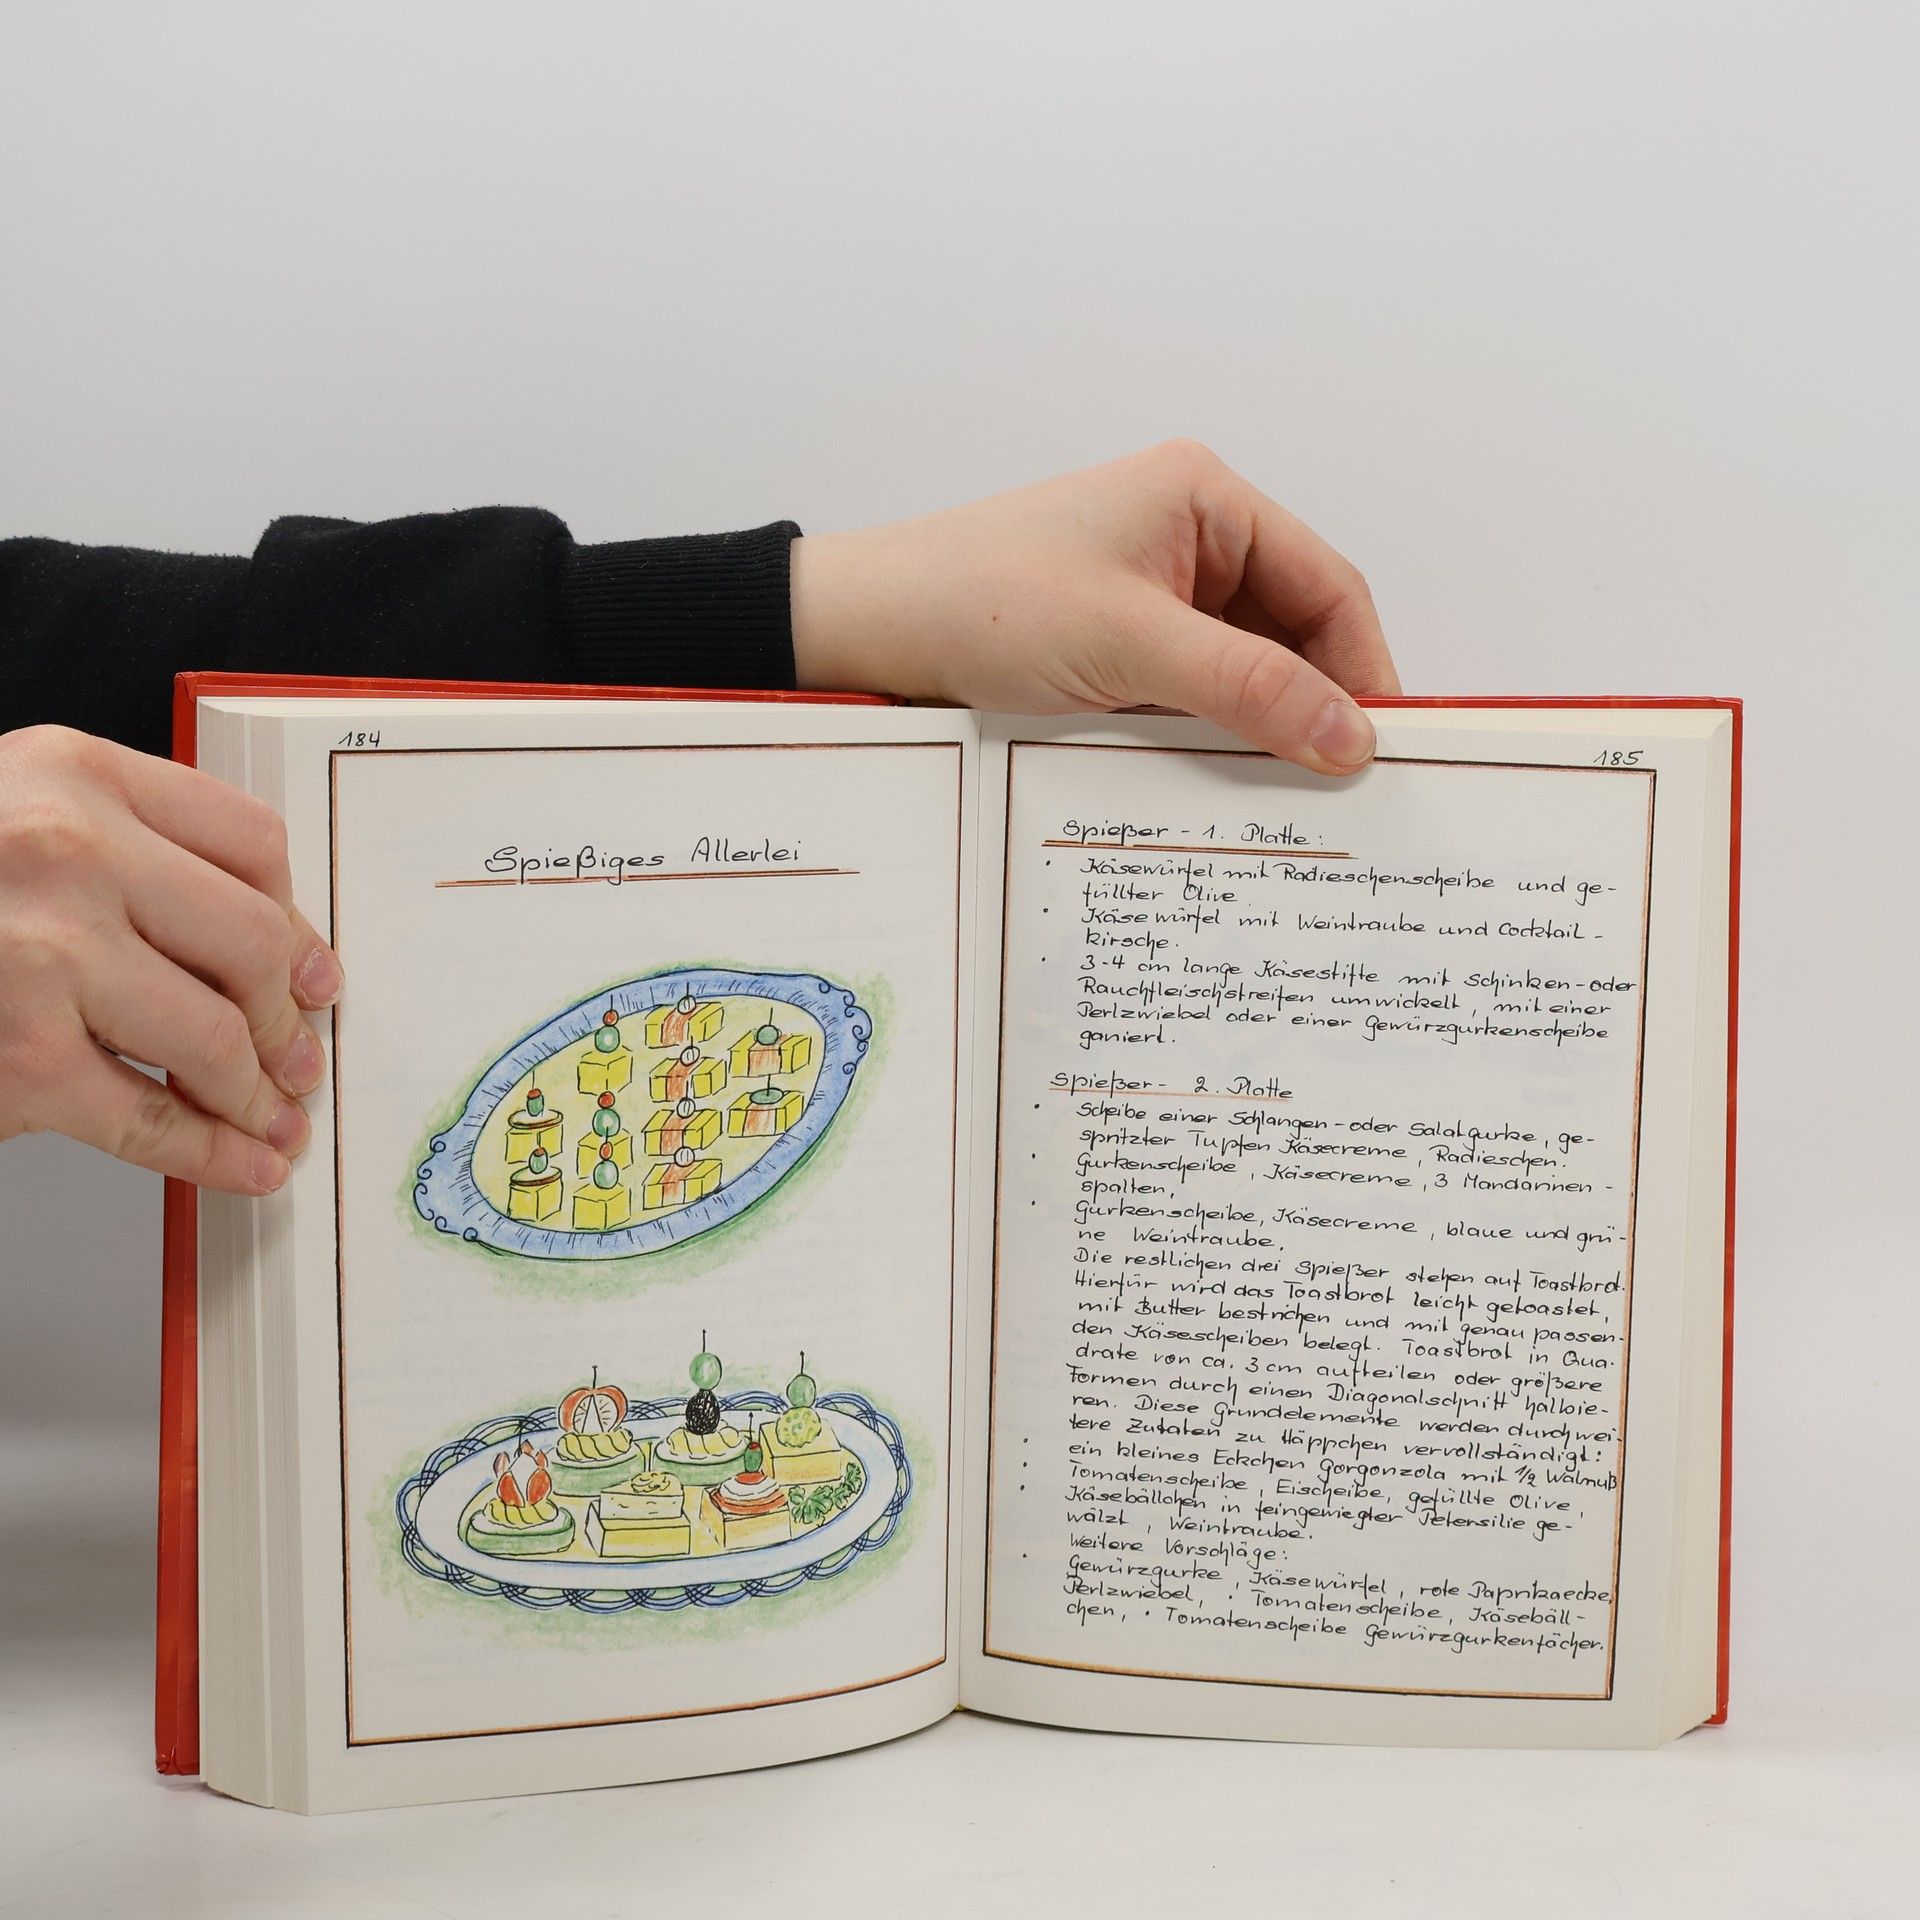 184
Spießiges Allerlei
185
Spießer - 1. Platte:
· Käsewürfel mit Radieschenscheibe und ge-
füllter Olive
· Käsewürfel mit Weintraube und Cocktail-
kirsche.
· 3-4 cm lange Käsestifte mit Schinken- oder
Rauchfleischstreifen umwickelt, mit einer
Perlzwiebel oder einer Gewürzgurkenscheibe
ganiert.
Spießer - 2. Platte
· Scheibe einer Schlangen- oder Salatgurke, ge-
spritzter Tupfen Käsecreme, Radieschen.
· Gurkenscheibe, Käsecreme, 3 Mandarinen-
spalten,
· Gurkenscheibe, Käsecreme, blaue und grü-
ne Weintraube.
Die restlichen drei Spießer stehen auf Toastbrot.
Hierfür wird das Toastbrot leicht getoastet,
mit Butter bestrichen und mit genau passen-
den Käsescheiben belegt. Toastbrot in Qua-
drate von ca. 3 cm aufteilen oder größere
Formen durch einen Diagonalschnitt halbie-
ren. Diese Grundelemente werden durch wei-
tere Zutaten zu Häppchen vervollständigt:
· ein kleines Eckchen Gorgonzola mit 1/2 Walnuß
· Tomatenscheibe, Eischeibe, gefüllte Olive,
· Käsebällchen in feingewiegter Petersilie ge-
wälzt, Weintraube.
Weitere Vorschläge:
· Gewürzgurke, Käsewürfel, rote Paprikaecke,
Perlzwiebel, · Tomatenscheibe, Käsebäll-
chen, · Tomatenscheibe Gewürzgurkenfächer.